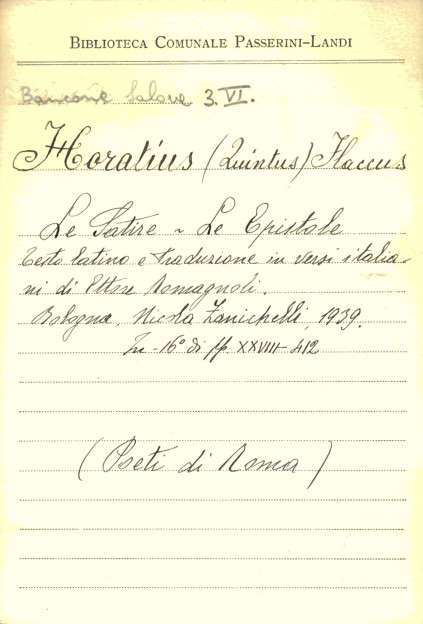 BIBLIOTECA COMUNALE PASSERINI-LANDI
Bancone Salone 3. VI.
Horatius (Quintus) Flaccus
Le Satire ~ Le Epistole
Testo latino e traduzione in versi italia-
ni di Ettore Romagnoli.
Bologna, Nicola Zanichelli, 1939.
In-16° di pp. XXVIII-412
(Poeti di Roma)